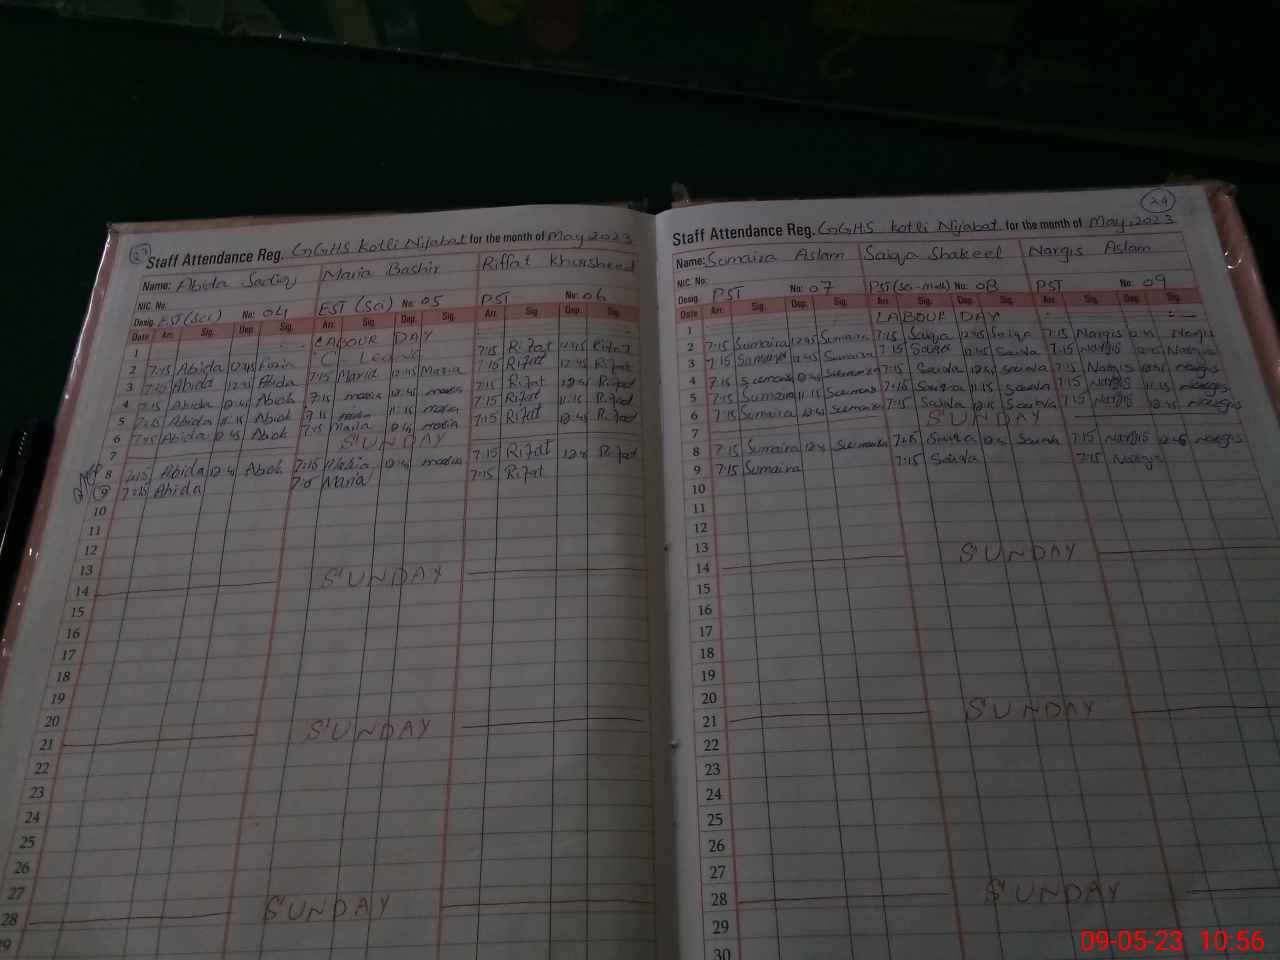 23
Staff Attendance Reg. GGHS Kotli Nijabat for the month of May 2023
Name: Abida Sadiq Maria Bashir Riffat Khursheed
NIC. No:
Desig. EST (Sci) No: 04 EST (Sci) No: 05 PST No: 06
Date Arr. Sig. Dep. Sig. Arr. Sig. Dep. Sig. Arr. Sig. Dep. Sig.
1 LABOUR DAY
2 7:15 Abida 12:45 C Leave 7:15 Rifat 12:45 Rifat
3 7:15 Abida 12:45 Abida 7:15 Maria 12:45 Maria 7:15 Rifat 12:45 Rifat
4 7:15 Abida 12:45 Abida 7:15 maria 12:45 maria 7:15 Rifat 12:45 Rifat
5 7:15 Abida 11:15 Abida 7:15 maria 11:15 maria 7:15 Rifat 11:15 Rifat
6 7:15 Abida 12:45 Abida 7:15 Maria 12:45 maria 7:15 Rifat 12:45 Rifat
7 SUNDAY
8 7:15 Abida 12:45 Abida 7:15 Maria 12:45 maria 7:15 Rifat 12:45 Rifat
9 7:15 Abida 7:15 Maria 7:15 Rifat
10
11
12
13
14 SUNDAY
15
16
17
18
19
20
21 SUNDAY
22
23
24
25
26
27
28 SUNDAY
29
24
Staff Attendance Reg. GGHS Kotli Nijabat for the month of May, 2023
Name: Sumaira Aslam Saiqa Shakeel Nargis Aslam
NIC. No:
Desig. PST No: 07 PST (Sci-Math) No: 08 PST No: 09
Date Arr. Sig. Dep. Sig. Arr. Sig. Dep. Sig. Arr. Sig. Dep. Sig.
1 LABOUR DAY
2 7:15 Sumaira 12:45 Sumaira 7:15 Saiqa 12:45 Saiqa 7:15 Nargis 12:45 Nargis
3 7:15 Sumaira 12:45 Sumaira 7:15 Saiqa 12:45 Saiqa 7:15 Nargis 12:45 Nargis
4 7:15 Sumaira 12:45 Sumaira 7:15 Saiqa 12:45 Saiqa 7:15 Nargis 12:45 Nargis
5 7:15 Sumaira 11:15 Sumaira 7:15 Saiqa 11:15 Saiqa 7:15 Nargis 11:15 Nargis
6 7:15 Sumaira 12:45 Sumaira 7:15 Saiqa Saiqa 7:15 Nargis 12:45 Nargis
7 SUNDAY
8 7:15 Sumaira 12:45 Sumaira 7:15 Saiqa 12:45 Saiqa 7:15 Nargis 12:45 Nargis
9 7:15 Sumaira 7:15 Saiqa 7:15 Nargis
10
11
12
13
14 SUNDAY
15
16
17
18
19
20
21 SUNDAY
22
23
24
25
26
27
28 SUNDAY
29
30
09-05-23 10:56